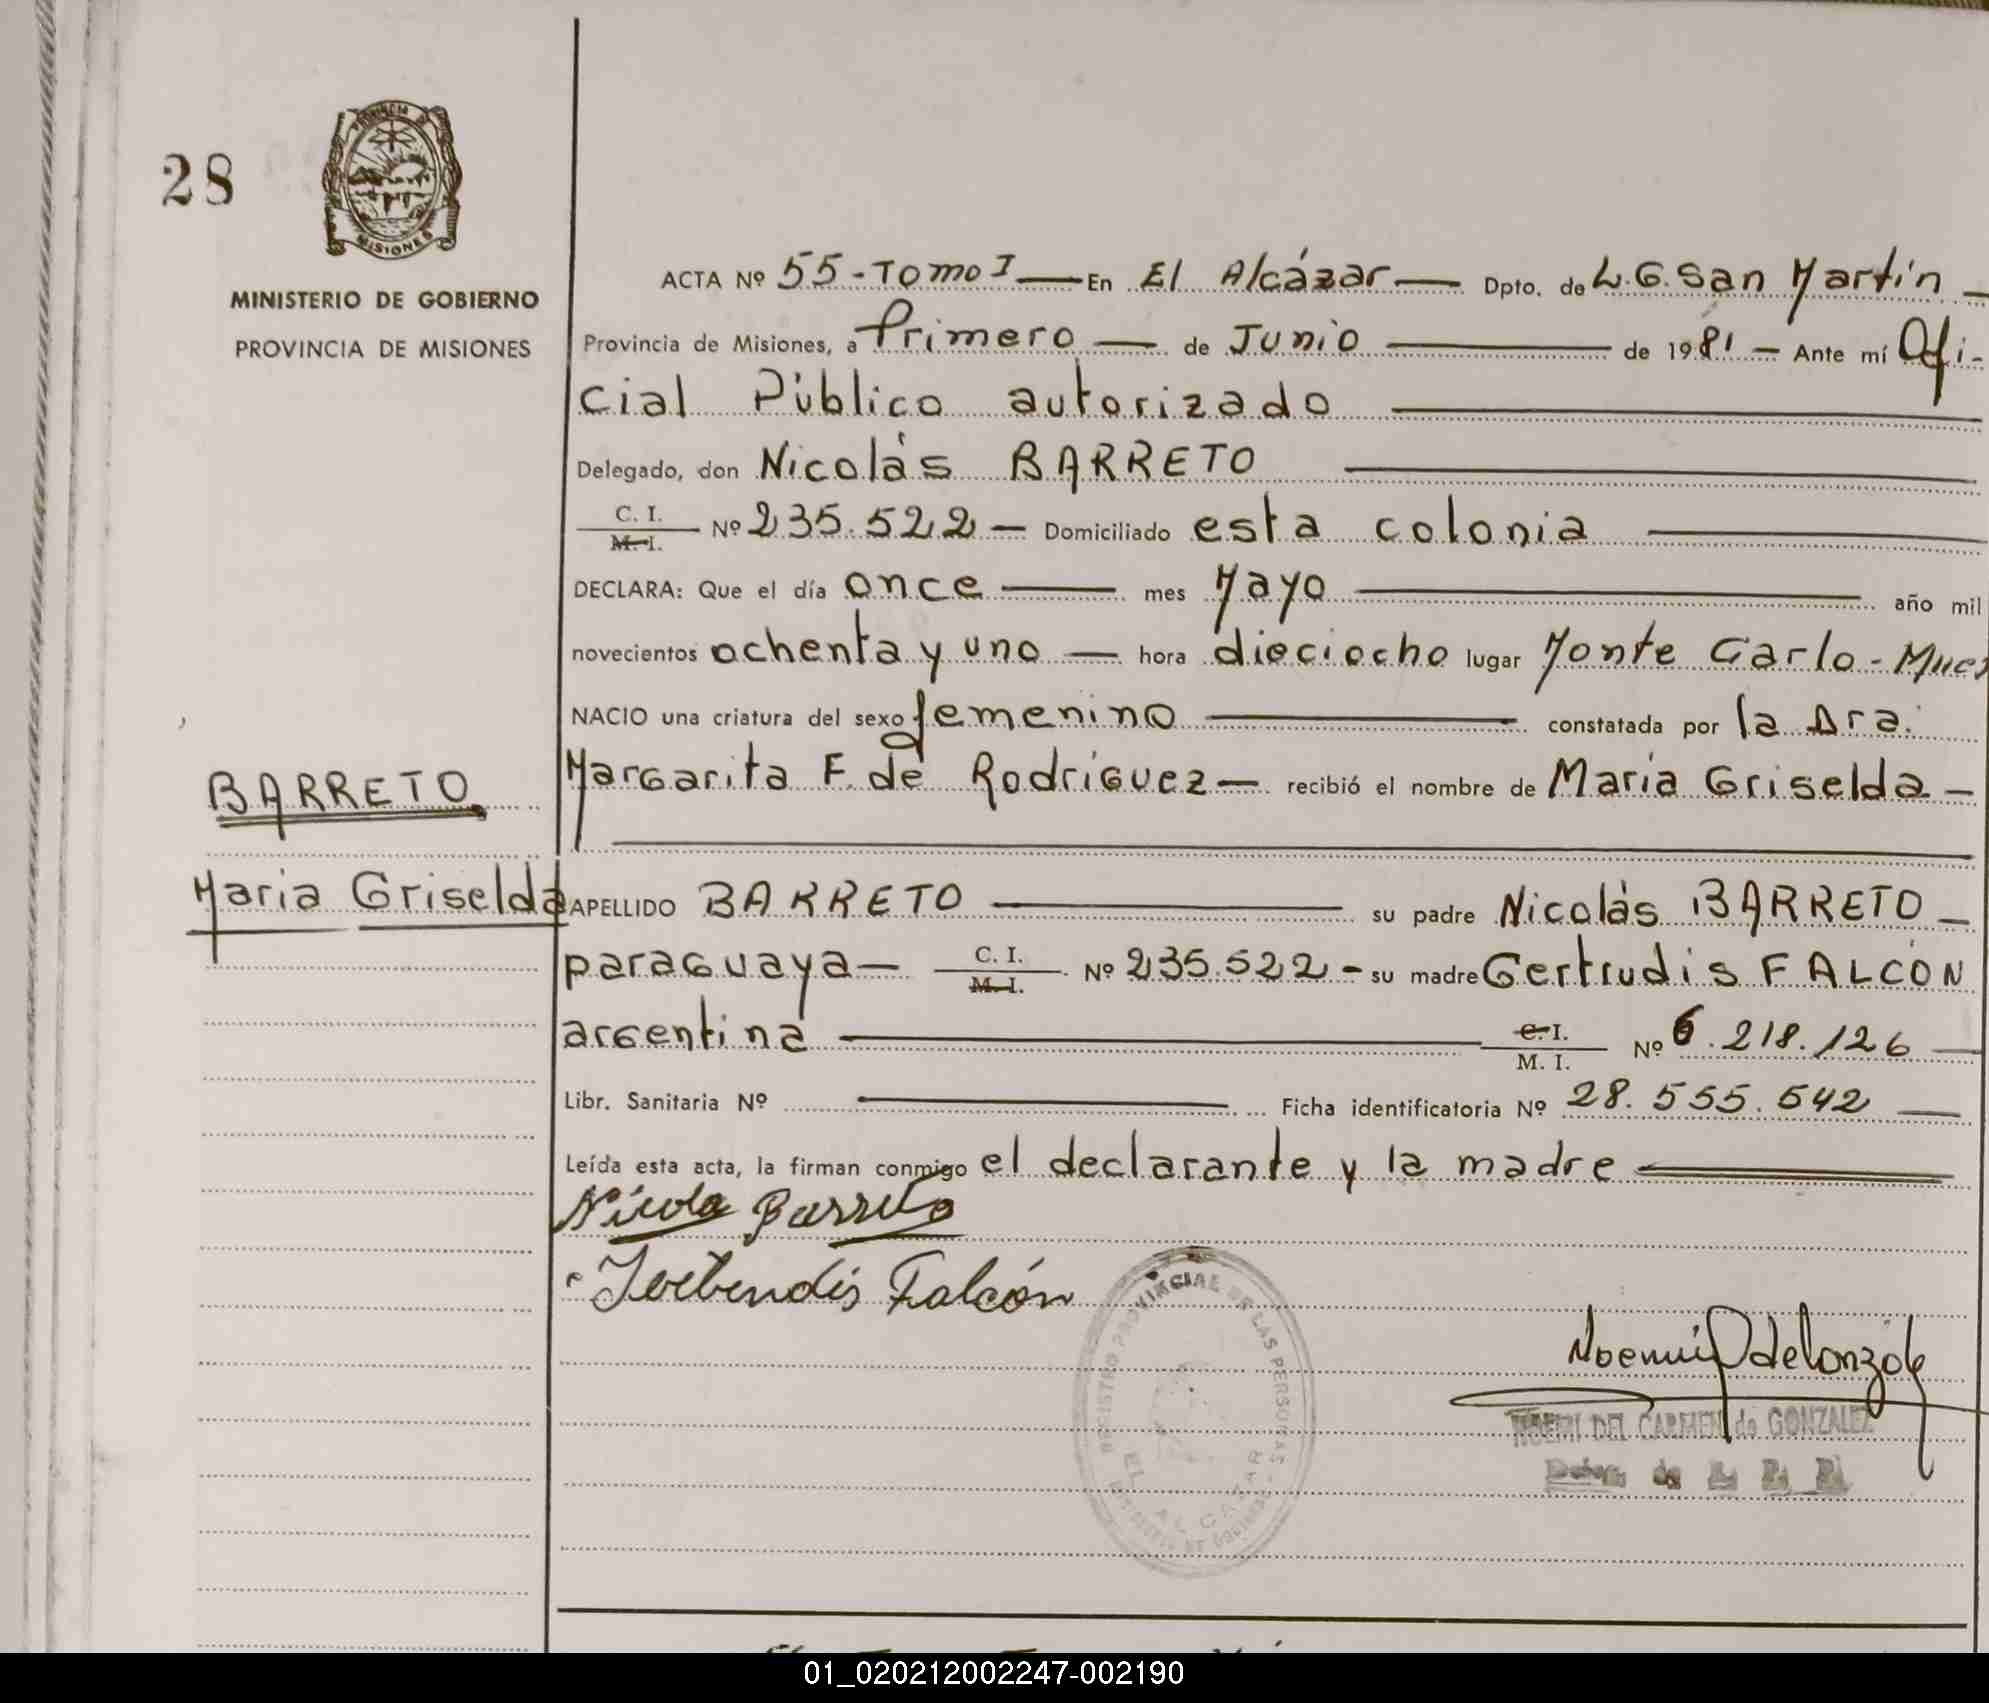 28
PROVINCIA DE
MISIONES
MINISTERIO DE GOBIERNO
PROVINCIA DE MISIONES
ACTA Nº 55-Tomo I — En El Alcázar — Dpto. de L.G. San Martín —
Provincia de Misiones, a Primero — de Junio — de 1981 — Ante mí Ofi-
cial Público autorizado
Delegado, don Nicolás BARRETO
C. I. / M. I. Nº 235.522 — Domiciliado esta colonia
DECLARA: Que el día once — mes Mayo — año mil
novecientos ochenta y uno — hora dieciocho lugar Monte Carlo - Mnes
NACIO una criatura del sexo femenino — constatada por la Dra.
Margarita F. de Rodríguez — recibió el nombre de María Griselda —
BARRETO
María Griselda
APELLIDO BARRETO — su padre Nicolás BARRETO —
paraguaya — C. I. / M. I. Nº 235.522 - su madre Gertrudis FALCÓN
argentina — C. I. / M. I. Nº 6.218.126 —
Libr. Sanitaria Nº — Ficha identificatoria Nº 28.555.542 —
Leída esta acta, la firman conmigo el declarante y la madre
Nicola Barreto
Falcón
REGISTRO PROVINCIAL DE LAS PERSONAS
EL ALCAZAR
NOEMI DEL CARMEN de GONZALEZ
01_020212002247-002190